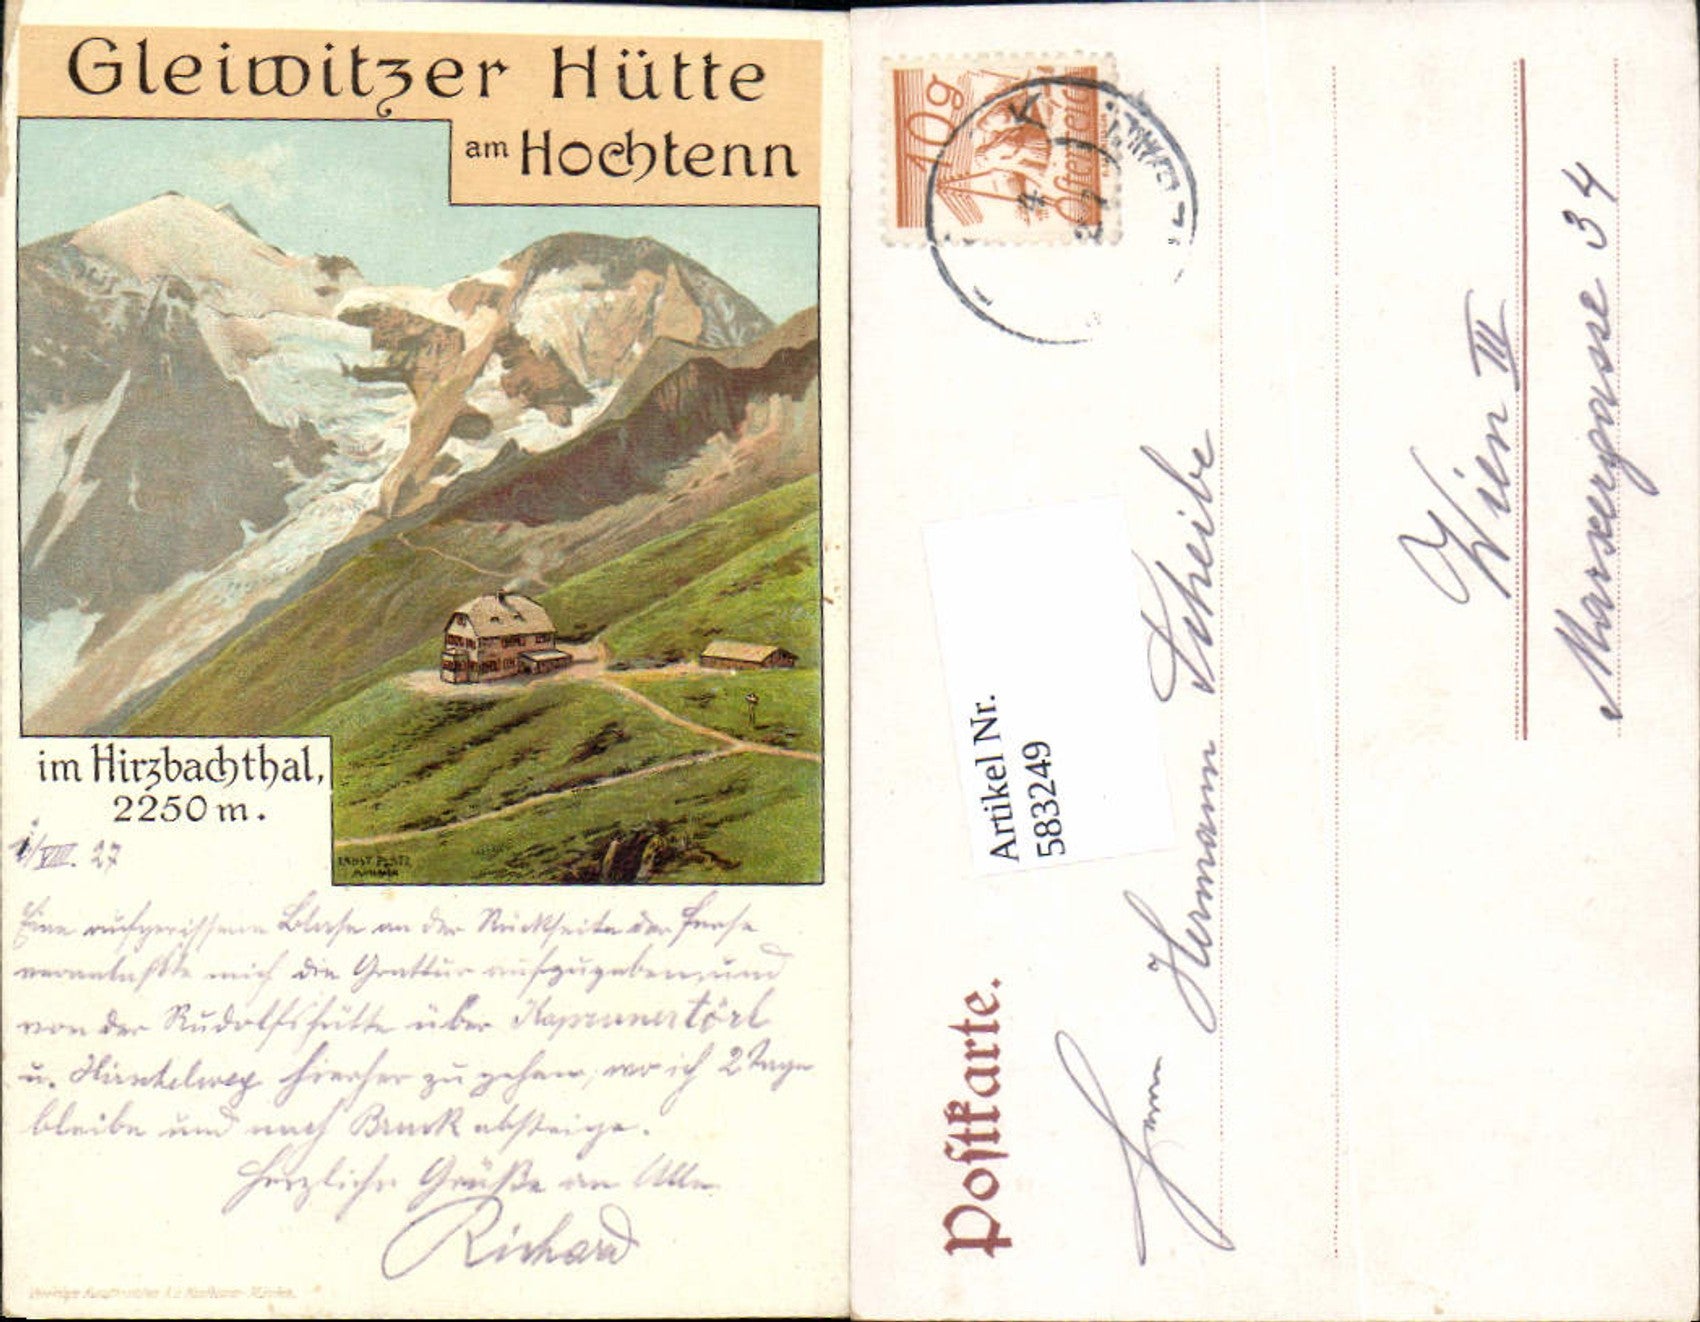 Gleiwitzer Hütte
am Hochtenn
im Hirzbachthal,
2250 m.
1/VIII. 27
ERNST PLATZ
Eine aufgerissene Blase an der Rückseite der Ferse
veranlaßte mich die Grattur aufzugeben, und
von der Rudolfshütte über Kaprunertörl
u. Hirschelweg hierher zu gehen, wo ich 2 Tage
bleibe und nach Bruck absteige.
Herzliche Grüße an Alle
Richard
10g
Österreich
Artikel Nr.
583249
Postkarte.
Herrn Hermann Scheibe
Wien III
Marxergasse 34